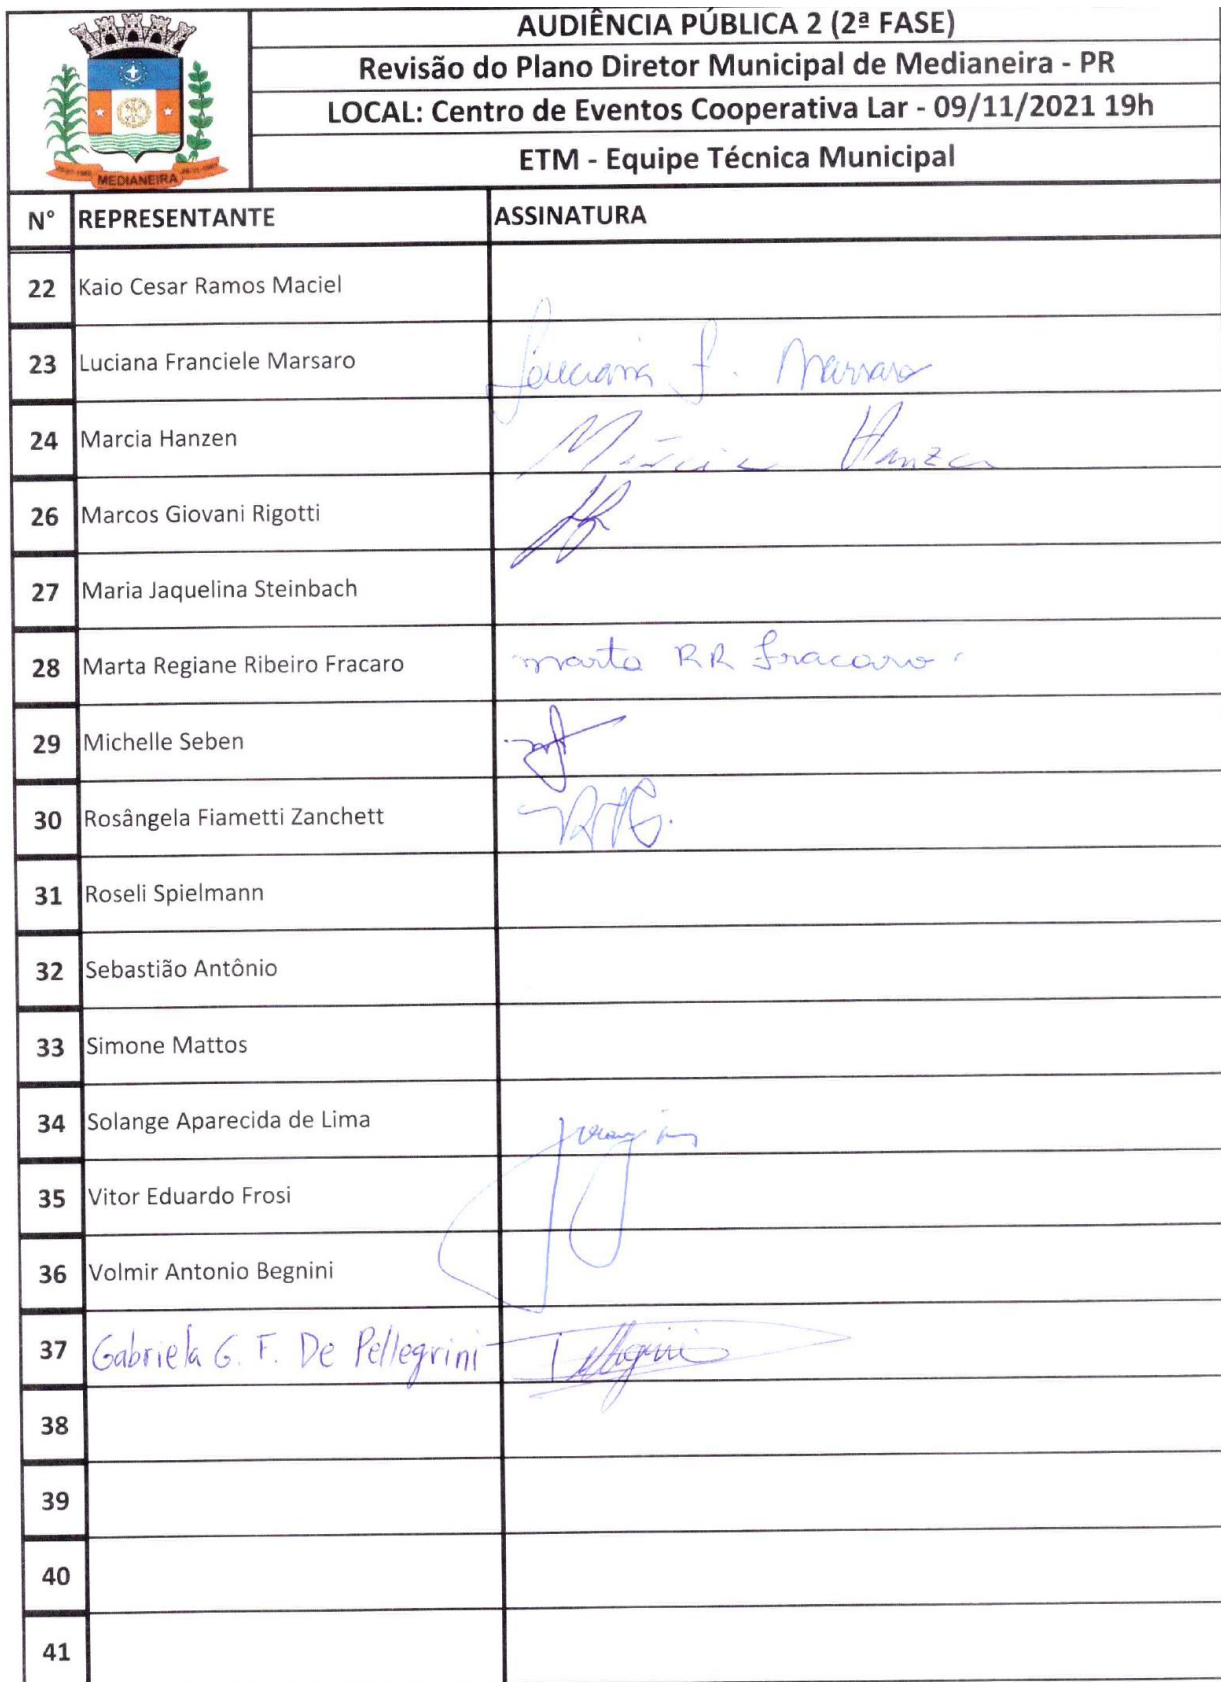 AUDIÊNCIA PÚBLICA 2 (2ª FASE)
Revisão do Plano Diretor Municipal de Medianeira - PR
LOCAL: Centro de Eventos Cooperativa Lar - 09/11/2021 19h
ETM - Equipe Técnica Municipal
MEDIANEIRA
N° REPRESENTANTE ASSINATURA
22 Kaio Cesar Ramos Maciel
23 Luciana Franciele Marsaro Luciana F. Marsaro
24 Marcia Hanzen Márcia Hanzen
26 Marcos Giovani Rigotti
27 Maria Jaquelina Steinbach
28 Marta Regiane Ribeiro Fracaro Marta RR Fracaro
29 Michelle Seben
30 Rosângela Fiametti Zanchett
31 Roseli Spielmann
32 Sebastião Antônio
33 Simone Mattos
34 Solange Aparecida de Lima
35 Vitor Eduardo Frosi
36 Volmir Antonio Begnini
37 Gabriela G. F. De Pellegrini
38
39
40
41